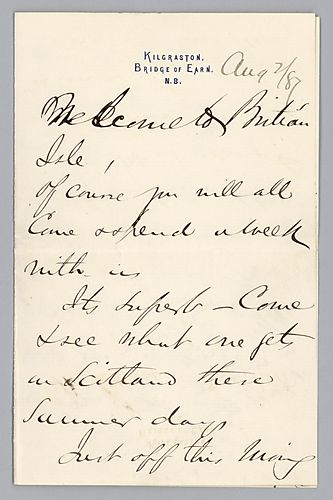 KILGRASTON,
BRIDGE OF EARN,
N.B.
Aug 2/87
Welcome to Britian
Isle,
of course you will all
Come & spend a week
with us
Its superb – Come
& see what one gets
in Scotland these
Summer days
Just off this morng